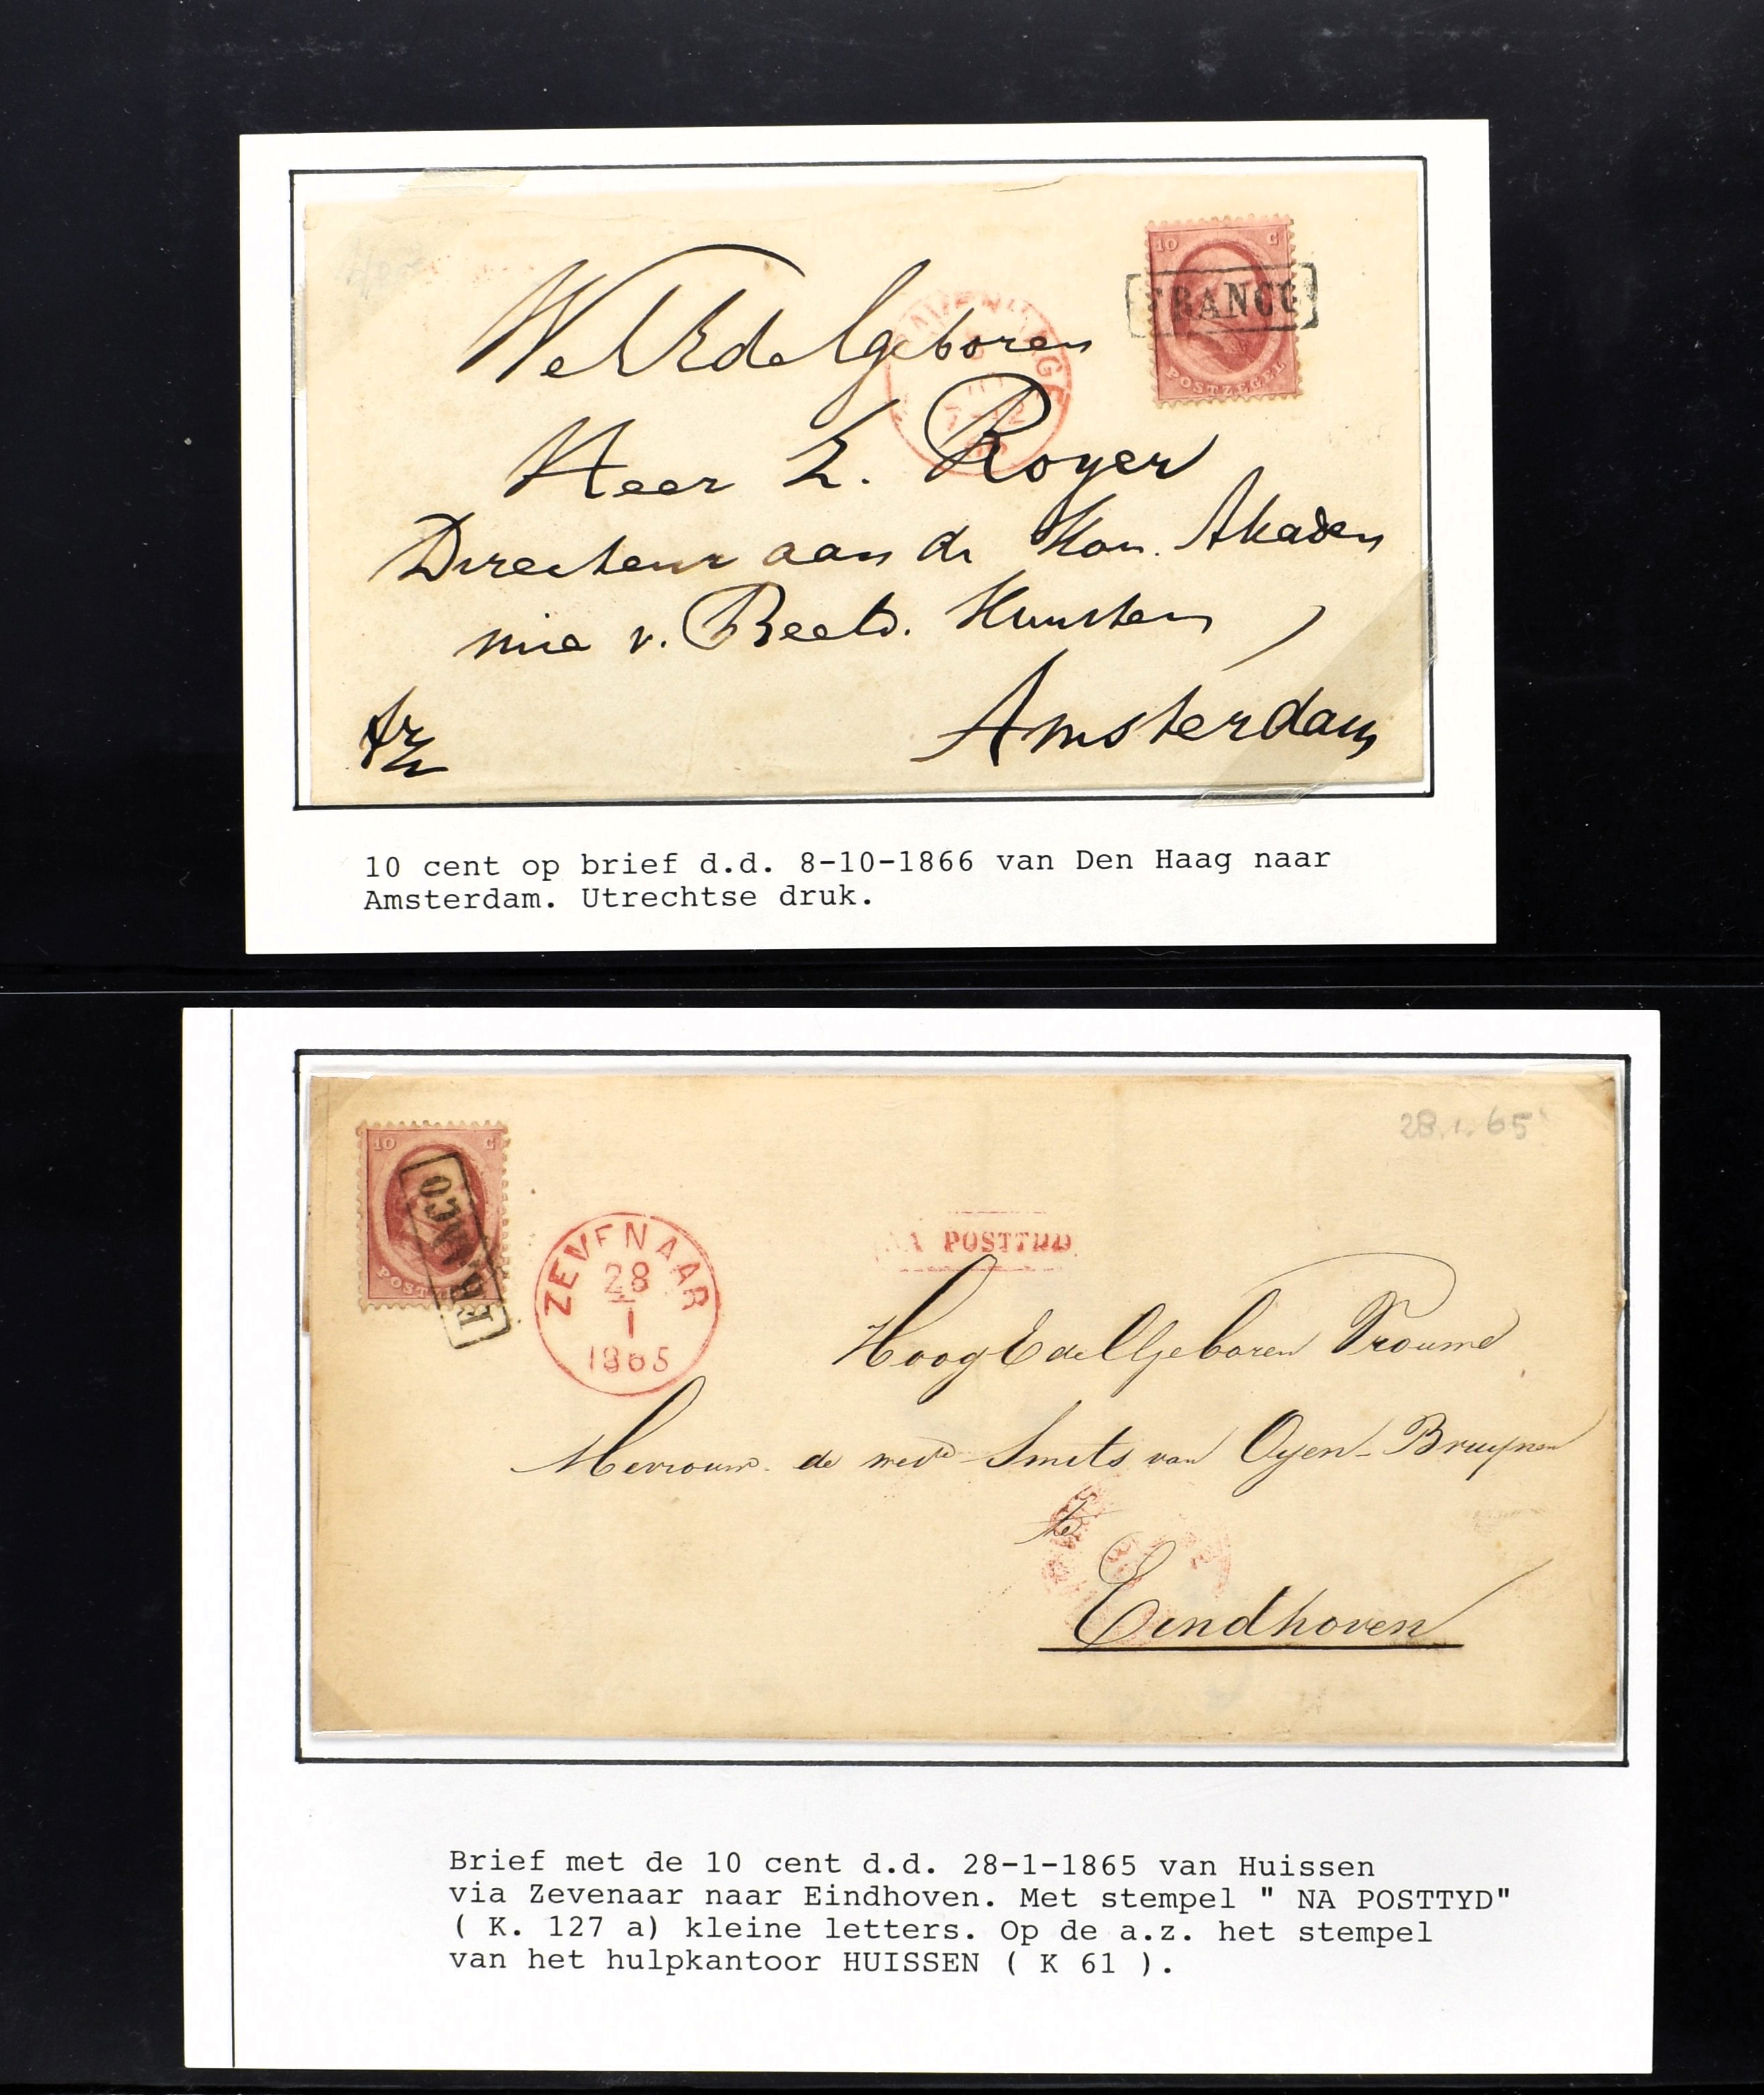 10 C
FRANCO
POSTZEGEL
WelEdelgeboren
Heer L. Royer
Directeur aan de Kon. Akadem
mie v. Beeld. Kunsten
Amsterdam
10 cent op brief d.d. 8-10-1866 van Den Haag naar
Amsterdam. Utrechtse druk.
28.1.65
10 C
FRANCO
ZEVENAAR
28
1
1865
NA POSTTYD
HoogEdelGeboren Vrouwe
Mevrouw de wede Smits van Oyen-Bruynen
te
Eindhoven
Brief met de 10 cent d.d. 28-1-1865 van Huissen
via Zevenaar naar Eindhoven. Met stempel " NA POSTTYD"
( K. 127 a) kleine letters. Op de a.z. het stempel
van het hulpkantoor HUISSEN ( K 61 ).